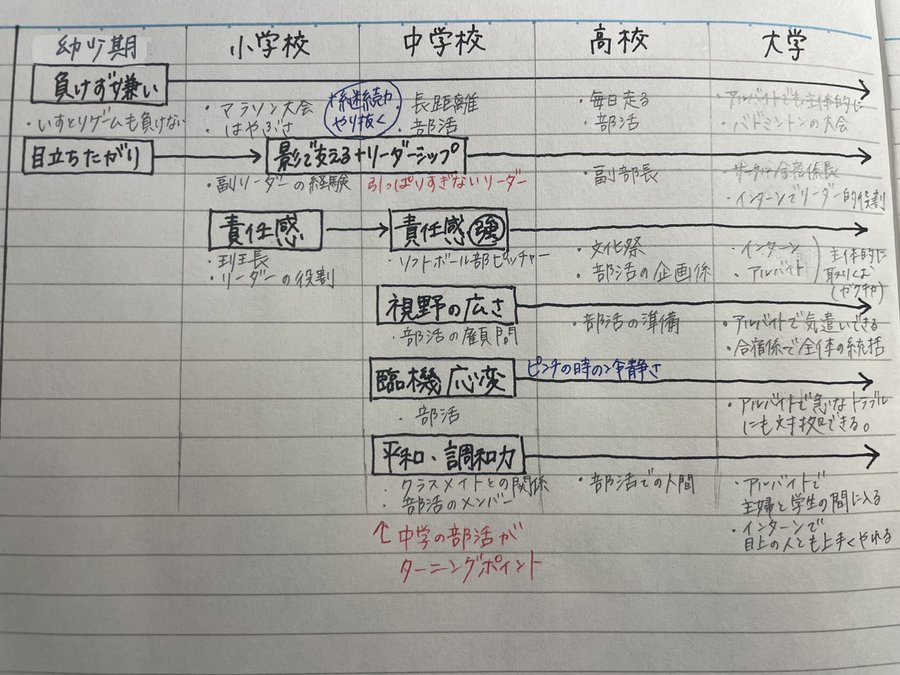 幼少期 小学校 中学校 高校 大学
負けず嫌い
・いすとりゲームも負けない
・マラソン大会
・はやぶさ
継続力
やり抜く
・長距離
・部活
・毎日走る
・部活
・アルバイトでも主体的に
・バドミントンの大会
目立ちたがり
影で支える+リーダーシップ
・副リーダーの経験
引っぱりすぎないリーダー
・副部長
・サークル合宿係長
・インターンでリーダー的役割
責任感
・班長
・リーダーの役割
責任感 強
・ソフトボール部ピッチャー
・文化祭
・部活の企画係
・インターン
・アルバイト
主体的に
取りくむ
(ガクチカ)
視野の広さ
・部活の顧問
・部活の準備
・アルバイトで気遣いできる
・合宿係で全体の統括
臨機応変
ピンチの時の冷静さ
・部活
・アルバイトで急なトラブル
にも対処できる。
平和・調和力
・クラスメイトとの関係
・部活のメンバー
・部活での人間
・アルバイトで
主婦と学生の間に入る
・インターンで
目上の人とも上手くやれる
↑中学の部活が
ターニングポイント